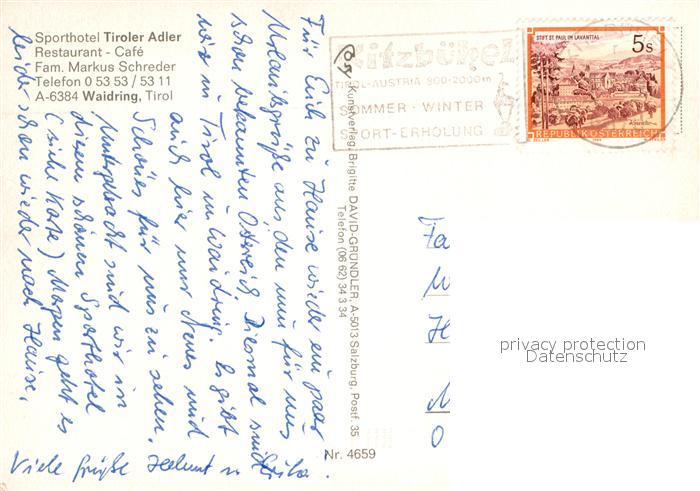 Sporthotel Tiroler Adler
Restaurant - Café
Fam. Markus Schreder
Telefon 0 53 53 / 53 11
A-6384 Waidring, Tirol
Kitzbühel
TIROL-AUSTRIA 800-2000m
SOMMER · WINTER
SPORT-ERHOLUNG
STIFT ST. PAUL IM LAVANTTAL
5s
REPUBLIK ÖSTERREICH
Für Euch zu Hause wieder ein paar
Urlaubsgrüße aus den nun für uns
schon bekannten Östereich. Diesmal sind
wir in Tirol in Waidring. Es gibt
auch hier nur Neues und
Schönes für uns zu sehen.
Untergebracht sind wir in
diesem schönen Sporthotel
(siehe Karte) Morgen geht es
leider schon wieder nach Hause.
Viele Grüße Helmut u
Kunstverlag Brigitte DAVID-GRÜNDLER, A-5013 Salzburg, Postf. 35
Telefon (06 62) 34 3 34
Nr. 4659
Fa
H
O
privacy protection
Datenschutz